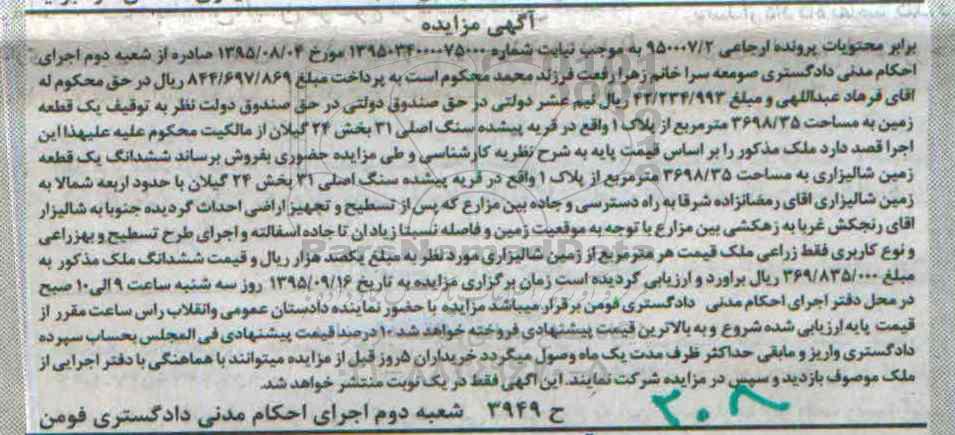 آگهی مزایده
برابر محتویات پرونده ارجاعی ۹۵۰۰۰۷/۲ به موجب نیابت شماره ۱۳۹۵۰۳۴۰۰۰۰۰۷۵۰۰۰ مورخ ۱۳۹۵/۰۸/۰۴ صادره از شعبه دوم اجرای
احکام مدنی دادگستری صومعه سرا خانم زهرا رفعت فرزند محمد محکوم است به پرداخت مبلغ ۸۴۴/۶۹۷/۸۶۹ ریال در حق محکوم له
اقای فرهاد عبداللهی و مبلغ ۴۲/۲۳۴/۹۹۳ ریال نیم عشر دولتی در حق صندوق دولتی در حق صندوق دولت نظر به توقیف یک قطعه
زمین به مساحت ۳۶۹۸/۳۵ مترمربع از پلاک ۱ واقع در قریه پیشده سنگ اصلی ۳۱ بخش ۲۴ گیلان از مالکیت محکوم علیه علیهذا این
اجرا قصد دارد ملک مذکور را بر اساس قیمت پایه به شرح نظریه کارشناسی و طی مزایده حضوری بفروش برساند ششدانگ یک قطعه
زمین شالیزاری به مساحت ۳۶۹۸/۳۵ مترمربع از پلاک ۱ واقع در قریه پیشده سنگ اصلی ۳۱ بخش ۲۴ گیلان با حدود اربعه شمالا به
زمین شالیزاری اقای رمضانزاده شرقا به راه دسترسی و جاده بین مزارع که پس از تسطیح و تجهیز اراضی احداث گردیده جنوبا به شالیزار
اقای رنجکش غربا به زهکشی بین مزارع با توجه به موقعیت زمین و فاصله نسبتا زیاد ان تا جاده اسفالته و اجرای طرح تسطیح و بهزراعی
و نوع کاربری فقط زراعی ملک قیمت هر مترمربع از زمین شالیزاری مورد نظر به مبلغ یکصد هزار ریال و قیمت ششدانگ ملک مذکور به
مبلغ ۳۶۹/۸۳۵/۰۰۰ ریال براورد و ارزیابی گردیده است زمان برگزاری مزایده به تاریخ ۱۳۹۵/۰۹/۱۶ روز سه شنبه ساعت ۹ الی ۱۰ صبح
در محل دفتر اجرای احکام مدنی دادگستری فومن برقرار میباشد مزایده با حضور نماینده دادستان عمومی وانقلاب راس ساعت مقرر از
قیمت پایه ارزیابی شده شروع و به بالاترین قیمت پیشنهادی فروخته خواهد شد ۱۰ درصد قیمت پیشنهادی فی المجلس بحساب سپرده
دادگستری واریز و مابقی حداکثر ظرف مدت یک ماه وصول میگردد خریداران ۵ روز قبل از مزایده میتوانند با هماهنگی با دفتر اجرایی از
ملک موصوف بازدید و سپس در مزایده شرکت نمایند. این آگهی فقط در یک نوبت منتشر خواهد شد.
ح ۳۹۴۹ شعبه دوم اجرای احکام مدنی دادگستری فومن
۳۰۸